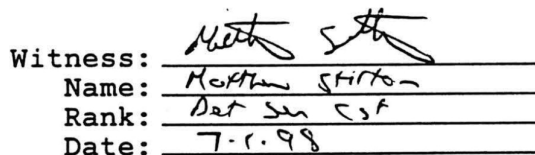 Witness:
Name: Matthew Stirton
Rank: Det Sen Cst
Date: 7.1.98